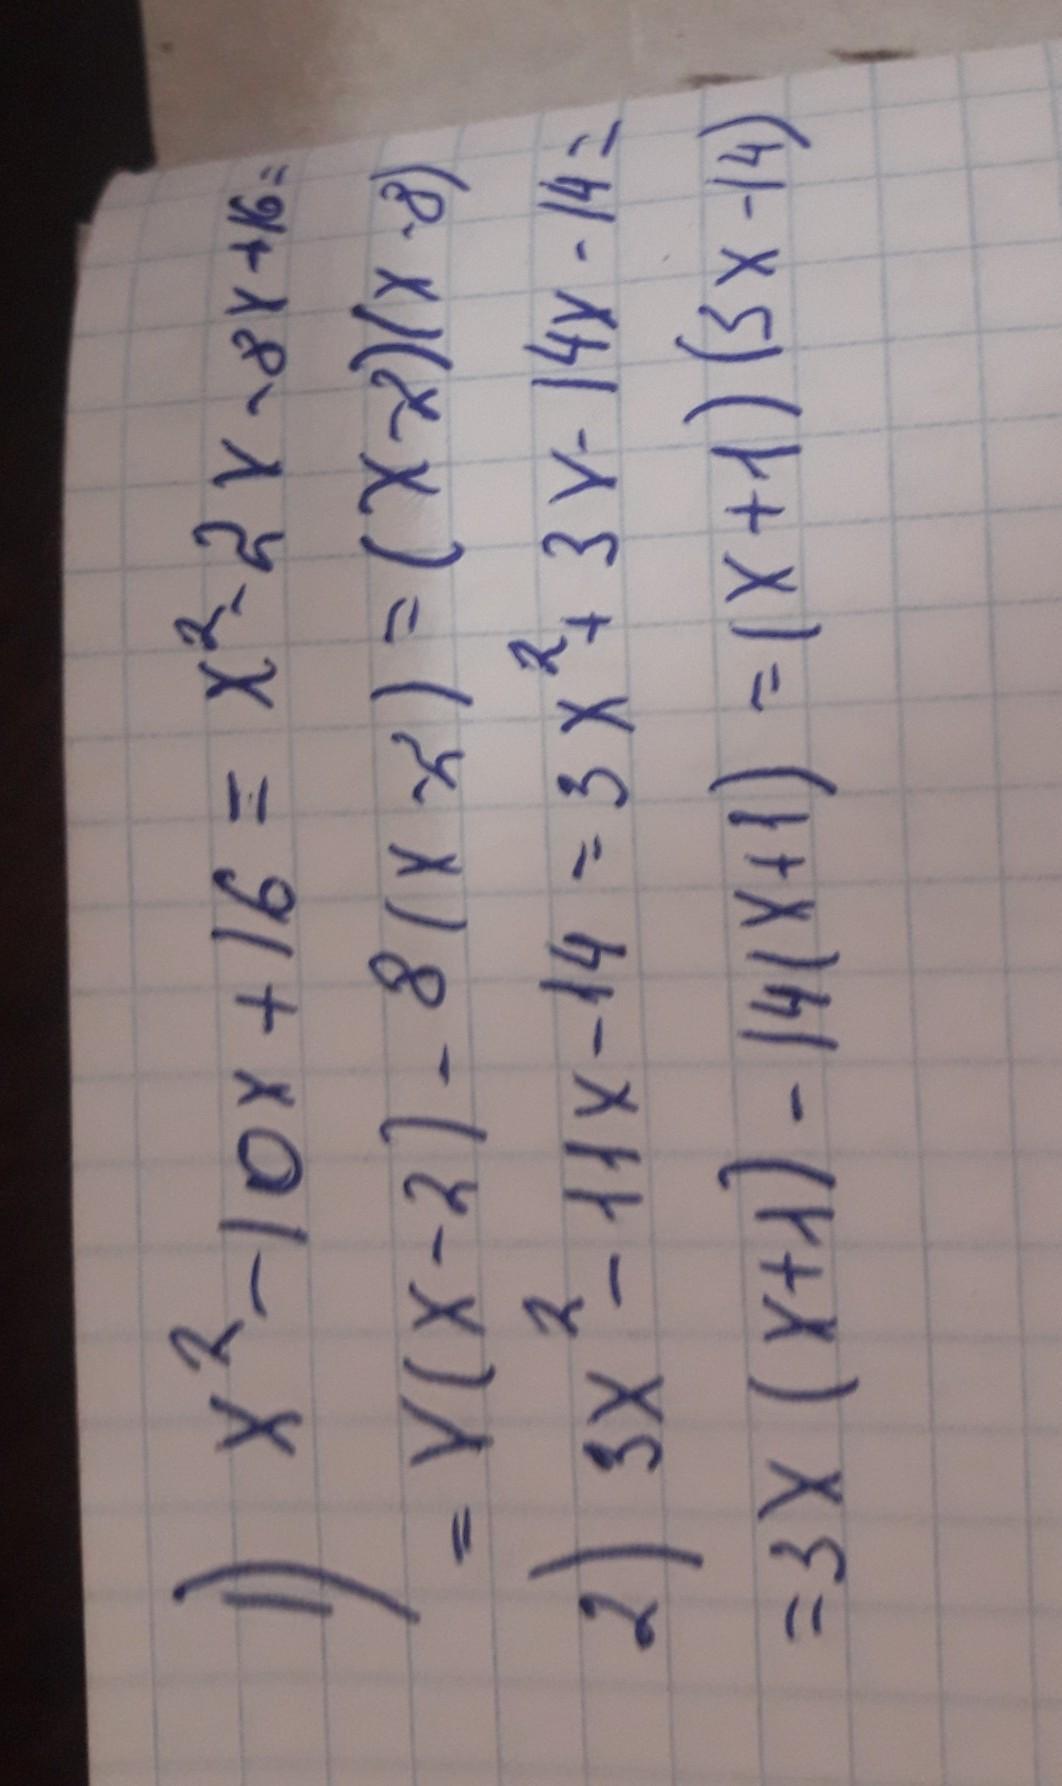 1) x² - 10x + 16 = x² - 2x - 8x + 16 =
= x(x - 2) - 8(x - 2) = (x - 2)(x - 8)
2) 3x² - 11x - 14 = 3x² + 3x - 14x - 14 =
= 3x(x+1) - 14(x+1) = (x+1)(3x - 14)